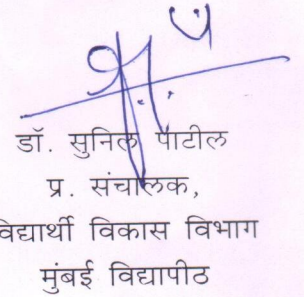 डॉ. सुनिल पाटील
प्र. संचालक,
विद्यार्थी विकास विभाग
मुंबई विद्यापीठ